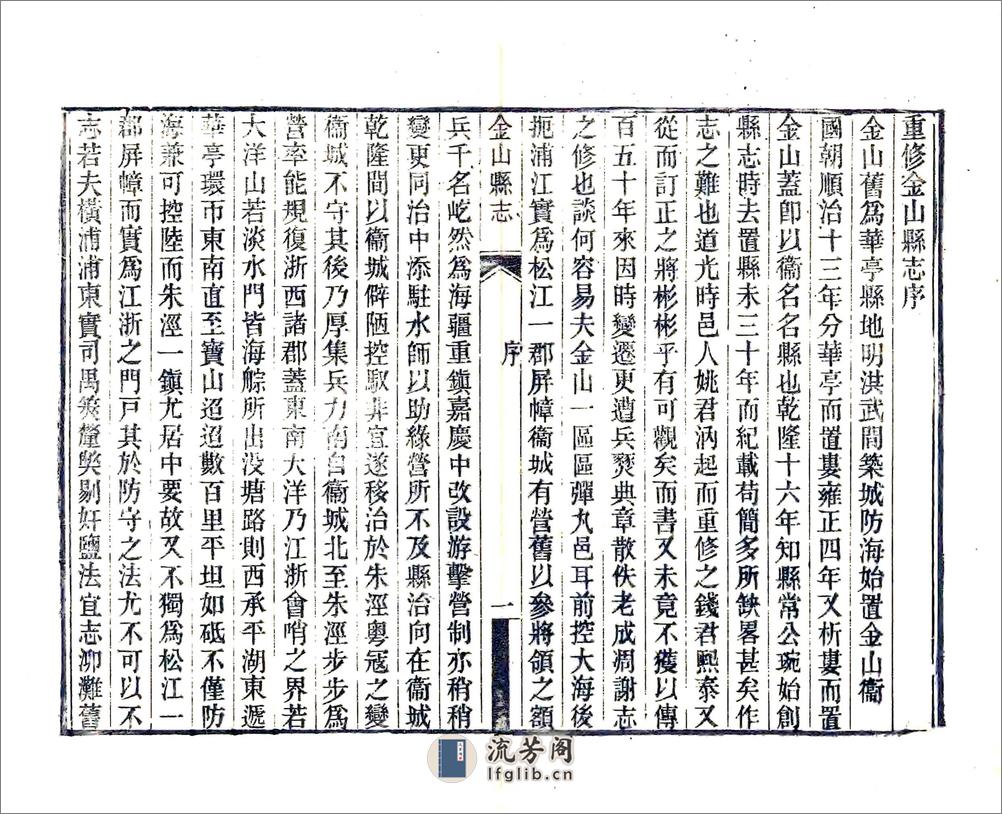 重修金山縣志序
金山舊爲華亭縣地明洪武間築城防海始置金山衞
國朝順治十三年分華亭而置婁雍正四年又析婁而置
金山蓋卽以衞名名縣也乾隆十六年知縣常公琬始創
縣志時去置縣未三十年而紀載苟簡多所缺畧甚矣作
志之難也道光時邑人姚君汭起而重修之錢君熙泰又
從而訂正之將彬彬乎有可觀矣而書又未竟不獲以傳
百五十年來因時變遷更遭兵燹典章散佚老成凋謝志
之修也談何容易夫金山一區區彈丸邑耳前控大海後
扼浦江實爲松江一郡屏幛衞城有營舊以參將領之額
金山縣志
序
一
兵千名屹然爲海疆重鎮嘉慶中改設游擊營制亦稍稍
變更同治中添駐水師以助綠營所不及縣治向在衞城
乾隆間以衞城僻陋控馭非宜遂移治於朱涇粵寇之變
衞城不守其後乃厚集兵力南自衞城北至朱涇步步爲
營率能規復浙西諸郡蓋東南大洋乃江浙會哨之界若
大洋山若淡水門皆海艅所出没塘路則西承平湖東遞
華亭環帀東南直至寶山迢迢數百里平坦如砥不僅防
海兼可控陸而朱涇一鎮尤居中要故又不獨爲松江一
郡屏幛而實爲江浙之門戸其於防守之法尤不可以不
志若夫橫浦浦東實司禺筴釐獘剔奸鹽法宜志泖灘舊
流芳阁
lfglib.cn